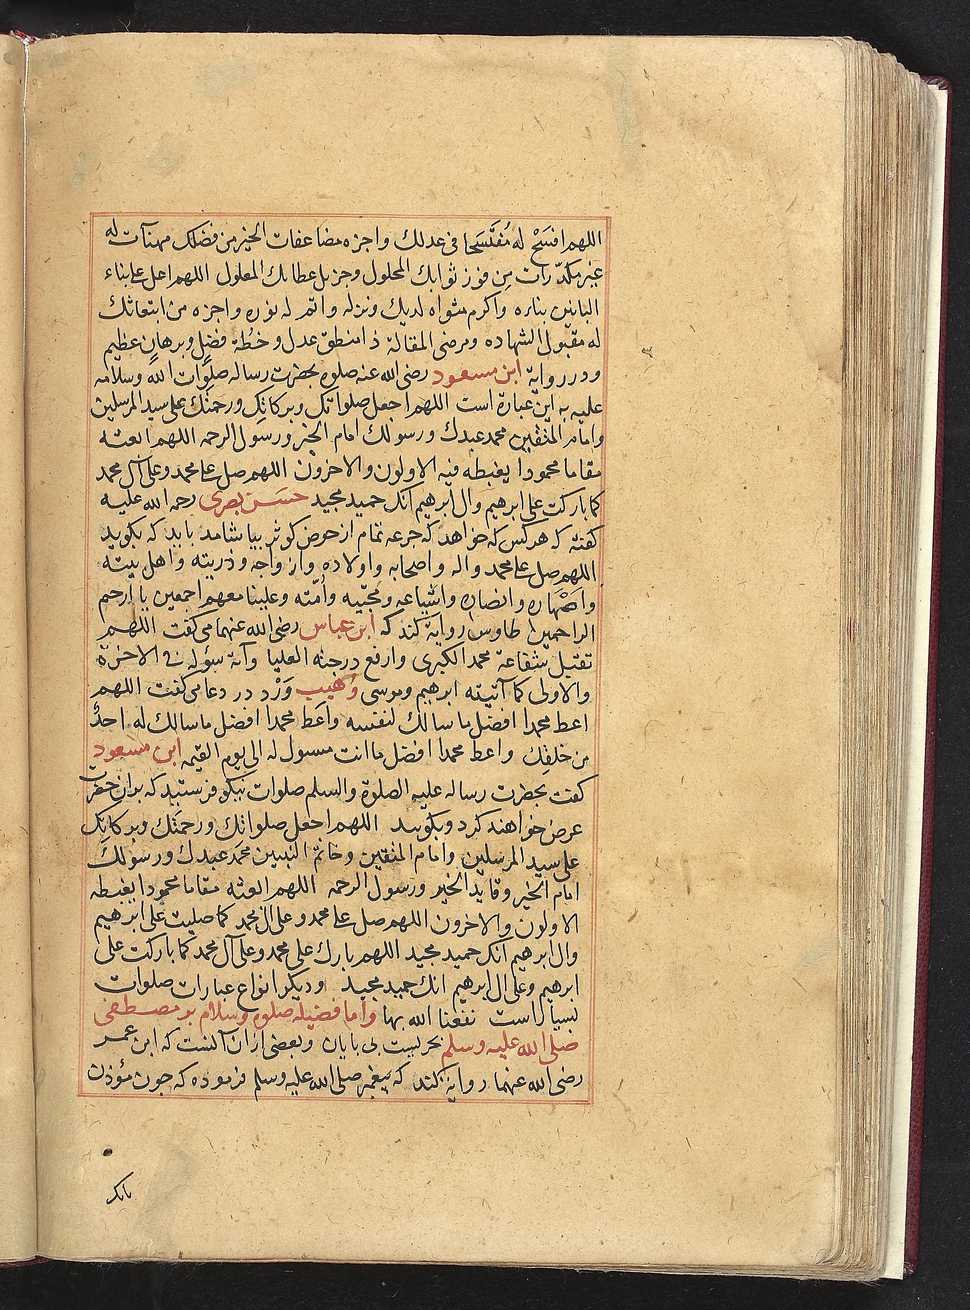 اللهم افسَحْ له مُفتَسَحا فی عدلك واجزه مضاعفات الخیر من فضلك مهنآت له
غیر مکدّرات مِن فوز ثوابك المحلول وجزیل عطایك المعلول اللهم اعل علی بناء
البانین بناءه واکرم مثواه لدیك ونزله واتمم له نوره واجزه من ابتعاثك
له مقبول الشهاده ومرضی المقالة ذا منطق عدل وخُطّة فضلٍ وبرهانٍ عظیم
ودر روایة ابن مسعود رضی الله عنه صلوه بحضرت رساله صلوات الله وسلامه
علیه به این عبارة است اللهم اجعل صلواتك وبرکاتك ورحمتك علی سید المرسلین
وامام المتقین محمد عبدك ورسولك امام الخیر ورسول الرحمه اللهم ابعثه
مقاما محمودا یغبطه فیه الاولون والاخرون اللهم صل علی محمد وعلی آل محمد
کما بارکت علی ابرهیم وال ابرهیم انك حمید مجید حسن بصری رحمه الله علیه
کفته که هر کس که خواهد که جرعه تمام از حوض کوثر بیاشامد باید که بکوید
اللهم صل علی محمد واله واصحابه واولاده وازواجه وذریته واهل بیته
واصْهاره وانصاره واشیاعه ومحبّیه وأمّته وعلینا معهم اجمعین یا ارحم
الراحمین طاوس روایة کند که ابن عباس رضی الله عنهما می کفت اللهم
تقبل شفاعة محمد الکبری وارفع درجته العلیا وآته سؤله فی الاخرة
والاولی کما آتیته ابرهیم وموسی وُهَیب وَرْد در دعا می کفت اللهم
اعط محمدا افضل ما سالك لنفسه واعط محمدا افضل ما سالك له احدٌ
من خلقك واعط محمدا افضل ما انت مسول له الی یوم القیمه ابن مسعود
کفت بحضرت رساله علیه الصلوة والسلم صلوات نیکو فرستید که بران حضرت
عرض خواهند کرد وبکویید اللهم اجعل صلواتك ورحمتك وبرکاتك
علی سید المرسلین وامام المتقین وخاتم النبیین محمد عبدك ورسولك
امام الخیر وقاید الخیر ورسول الرحمه اللهم ابعثه مقاما محمودا یغبطه
الاولون والاخرون اللهم صل علی محمد وعلی ال محمد کما صلیت علی ابرهیم
وال ابرهیم انك حمید مجید اللهم بارك علی محمد وعلی آل محمد کما بارکت علی
ابرهیم وعلی ال ابرهیم انك حمید مجید ودیکر انواع عبارات صلوات
بسیار است نفعنا الله بها واما فضیله صلوه وسلام بر مصطفی
صلی الله علیه وسلم بحریست بی پایان وبعضی ازان آنست که ابن عمر
رضی الله عنهما روایة کند که پیغمبر صلی الله علیه وسلم فرموده که چون مؤذن